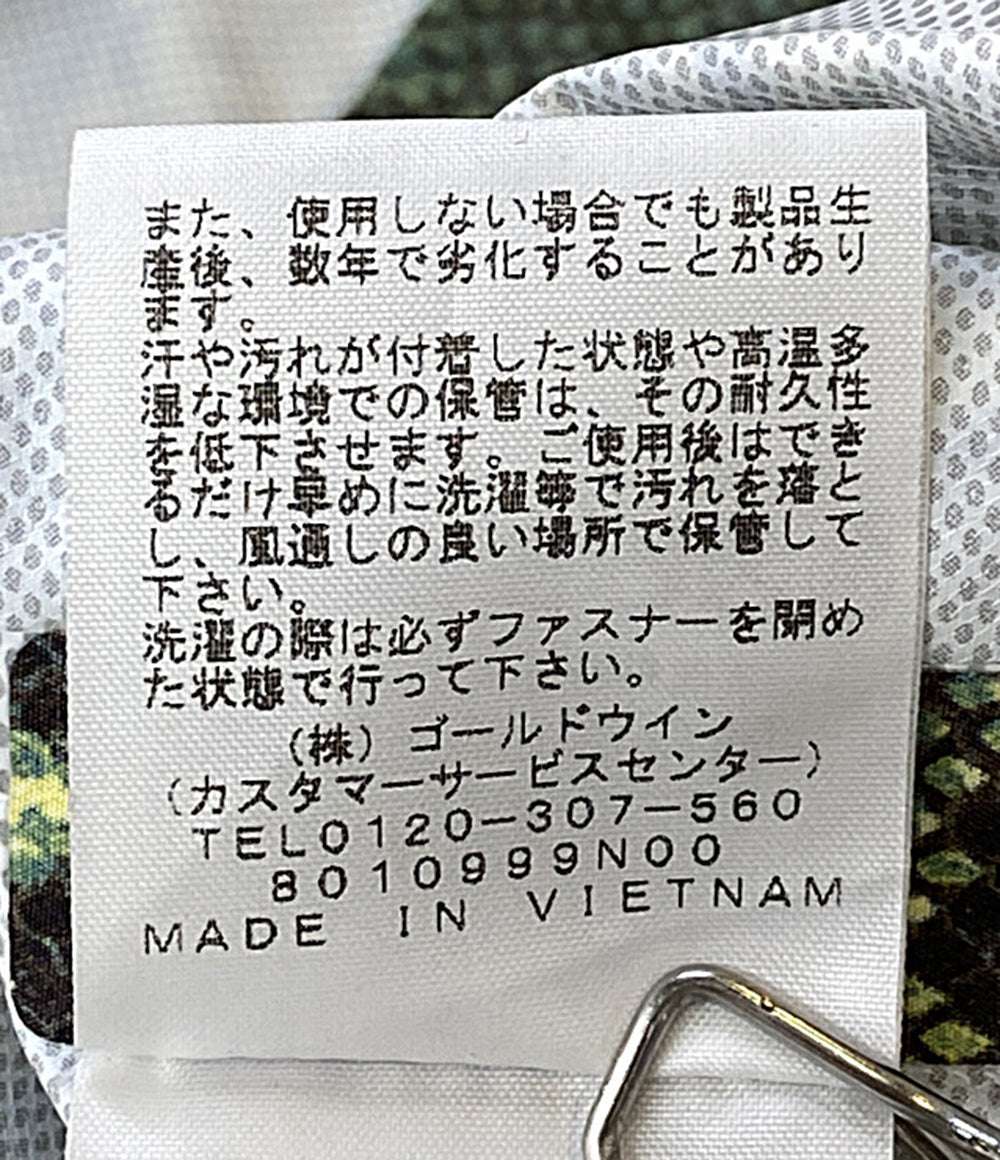 また、使用しない場合でも製品生
産後、数年で劣化することがあり
ます。
汗や汚れが付着した状態や高温多
湿な環境での保管は、その耐久性
を低下させます。ご使用後はでき
るだけ早めに洗濯等で汚れを落と
し、風通しの良い場所で保管して
下さい。
洗濯の際は必ずファスナーを閉め
た状態で行って下さい。
(株)ゴールドウイン
(カスタマーサービスセンター)
TEL0120-307-560
8010999N00
MADE IN VIETNAM